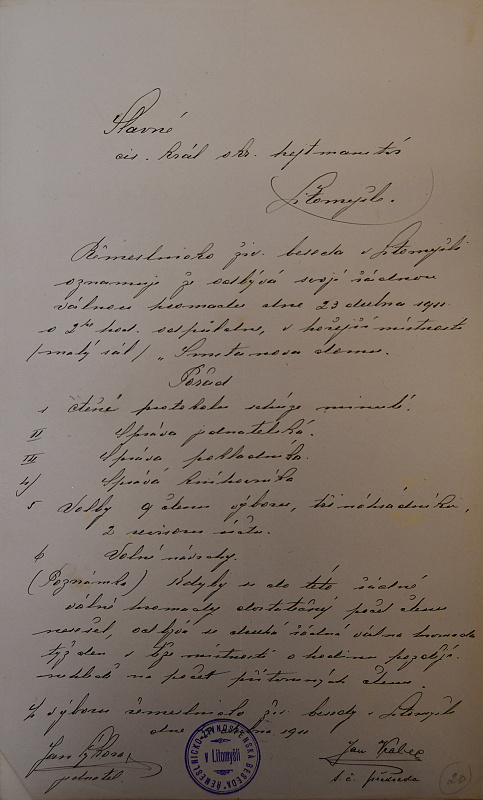 Slavné
cis. král okr. hejtmanství
Litomyšl.
Řemeslnicko živ. beseda v Litomyšli
oznamuje že odbývá svojí řádnou
valnou hromadu dne 23 dubna 1911
o 2hé hod. odpoledne, v hořejší místnosti
/malý sál/ „Smetanova domu.
Pořad
1 čtěné protokolu schůze minulé.
II Správa jednatelská.
III Správa pokladníka.
4) Správa knihovníka
5 Volby 9 členu výboru, tří náhradníku,
2 revisoru účtu.
6 Volné návrhy.
(Poznámka) Kdyby se do této řádné
valné hromady dostatečný počet členu
nesešel, odbývá se druhá řádná valna hromada
týž den v téže místnosti o hodinu pozdějí
nehledě na počet přítomných členu.
Z výboru řemeslnicko živ. besedy v Litomyšli
dne dubna 1911
Jan
jednatel.
ŘEMESLNICKO-ŽIVNOSTENSKÁ BESEDA
v Litomyšli
Jan Vrabec
t. č. předseda
20